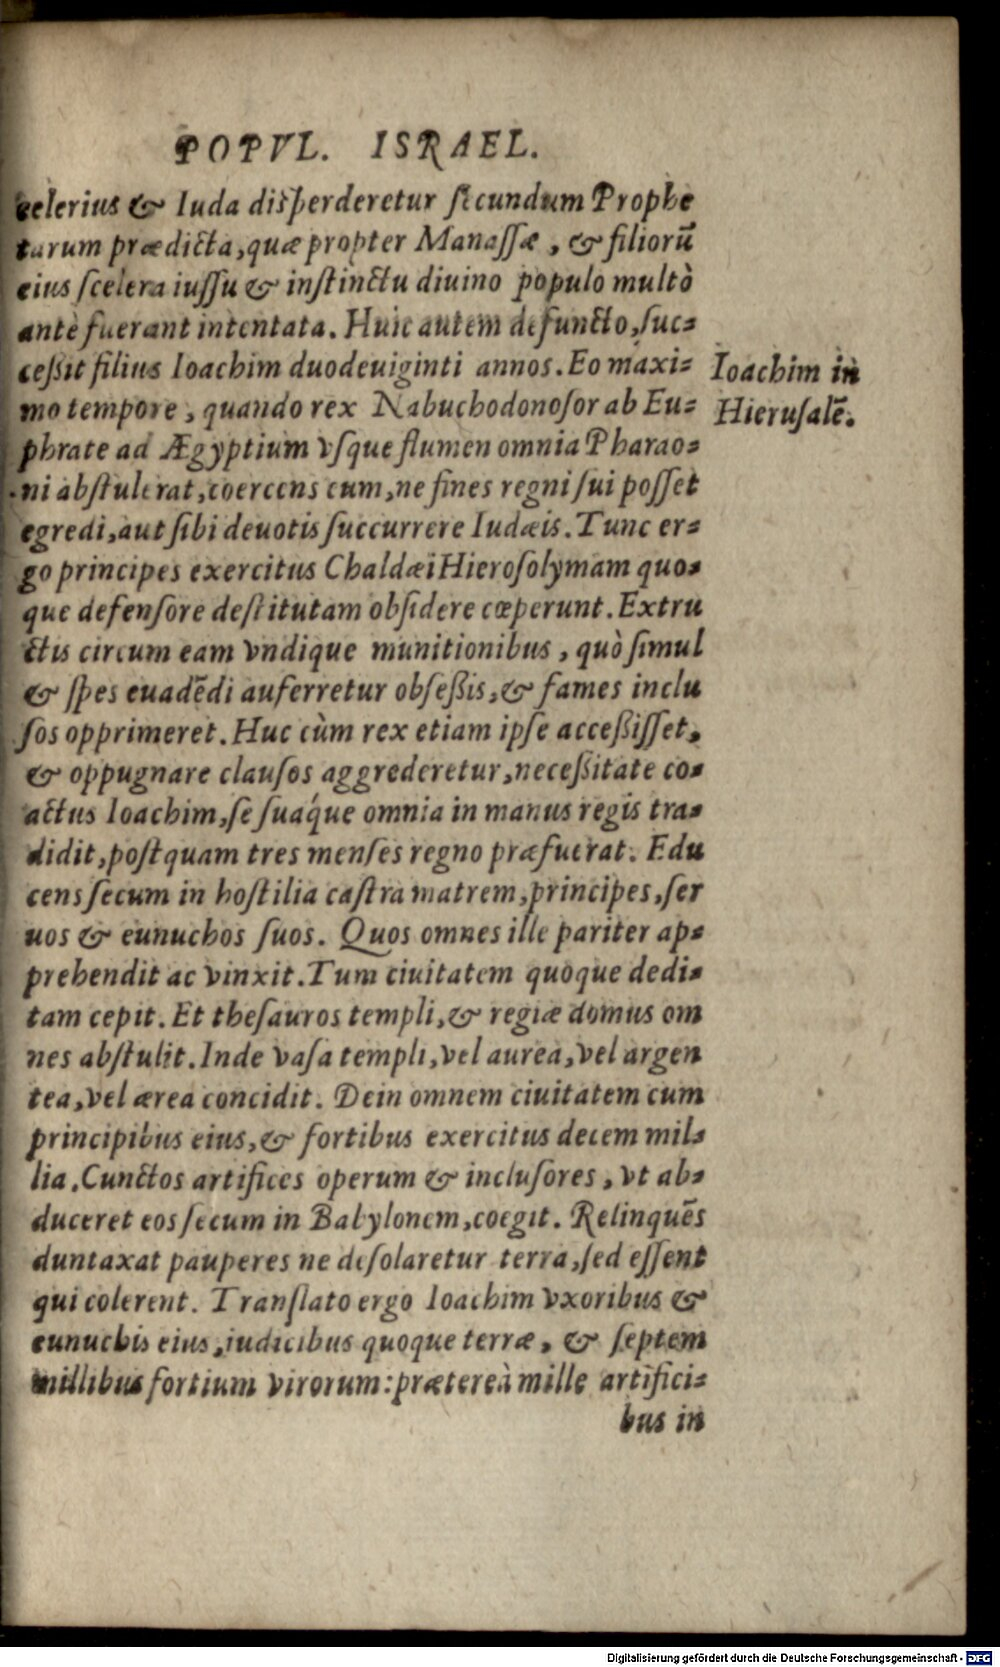 POPVL. ISRAEL.
celerius & Iuda disperderetur secundum Prophe
tarum prædicta, quæ propter Manassæ, & filiorū
eius scelera iussu & instinctu diuino populo multò
antè fuerant intentata. Huic autem defuncto, suc-
ceßit filius Ioachim duodeuiginti annos. Eo maxi-
mo tempore, quando rex Nabuchodonosor ab Eu-
phrate ad Ægyptium vsque flumen omnia Pharao-
ni abstulerat, coercens eum, ne fines regni sui posset
egredi, aut sibi deuotis succurrere Iudæis. Tunc er-
go principes exercitus Chaldæi Hierosolymam quo-
que defensore destitutam obsidere cœperunt. Extru
ctis circum eam vndique munitionibus, quò simul
& spes euadēdi auferretur obseßis, & fames inclu
sos opprimeret. Huc cùm rex etiam ipse acceßisset,
& oppugnare clausos aggrederetur, neceßitate co-
actus Ioachim, se suáque omnia in manus regis tra-
didit, postquam tres menses regno præfuerat. Edu
cens secum in hostilia castra matrem, principes, ser
uos & eunuchos suos. Quos omnes ille pariter ap-
prehendit ac vinxit. Tum ciuitatem quoque dedi-
tam cepit. Et thesauros templi, & regiæ domus om
nes abstulit. Inde vasa templi, vel aurea, vel argen
tea, vel ærea concidit. Dein omnem ciuitatem cum
principibus eius, & fortibus exercitus decem mil-
lia. Cunctos artifices operum & inclusores, vt ab-
duceret eos secum in Babylonem, coegit. Relinquēs
duntaxat pauperes ne desolaretur terra, sed essent
qui colerent. Translato ergo Ioachim vxoribus &
eunuchis eius, iudicibus quoque terræ, & septem
millibus fortium virorum: prætereà mille artifici-
bus in
Ioachim in
Hierusalē.
Digitalisierung gefördert durch die Deutsche Forschungsgemeinschaft - DFG